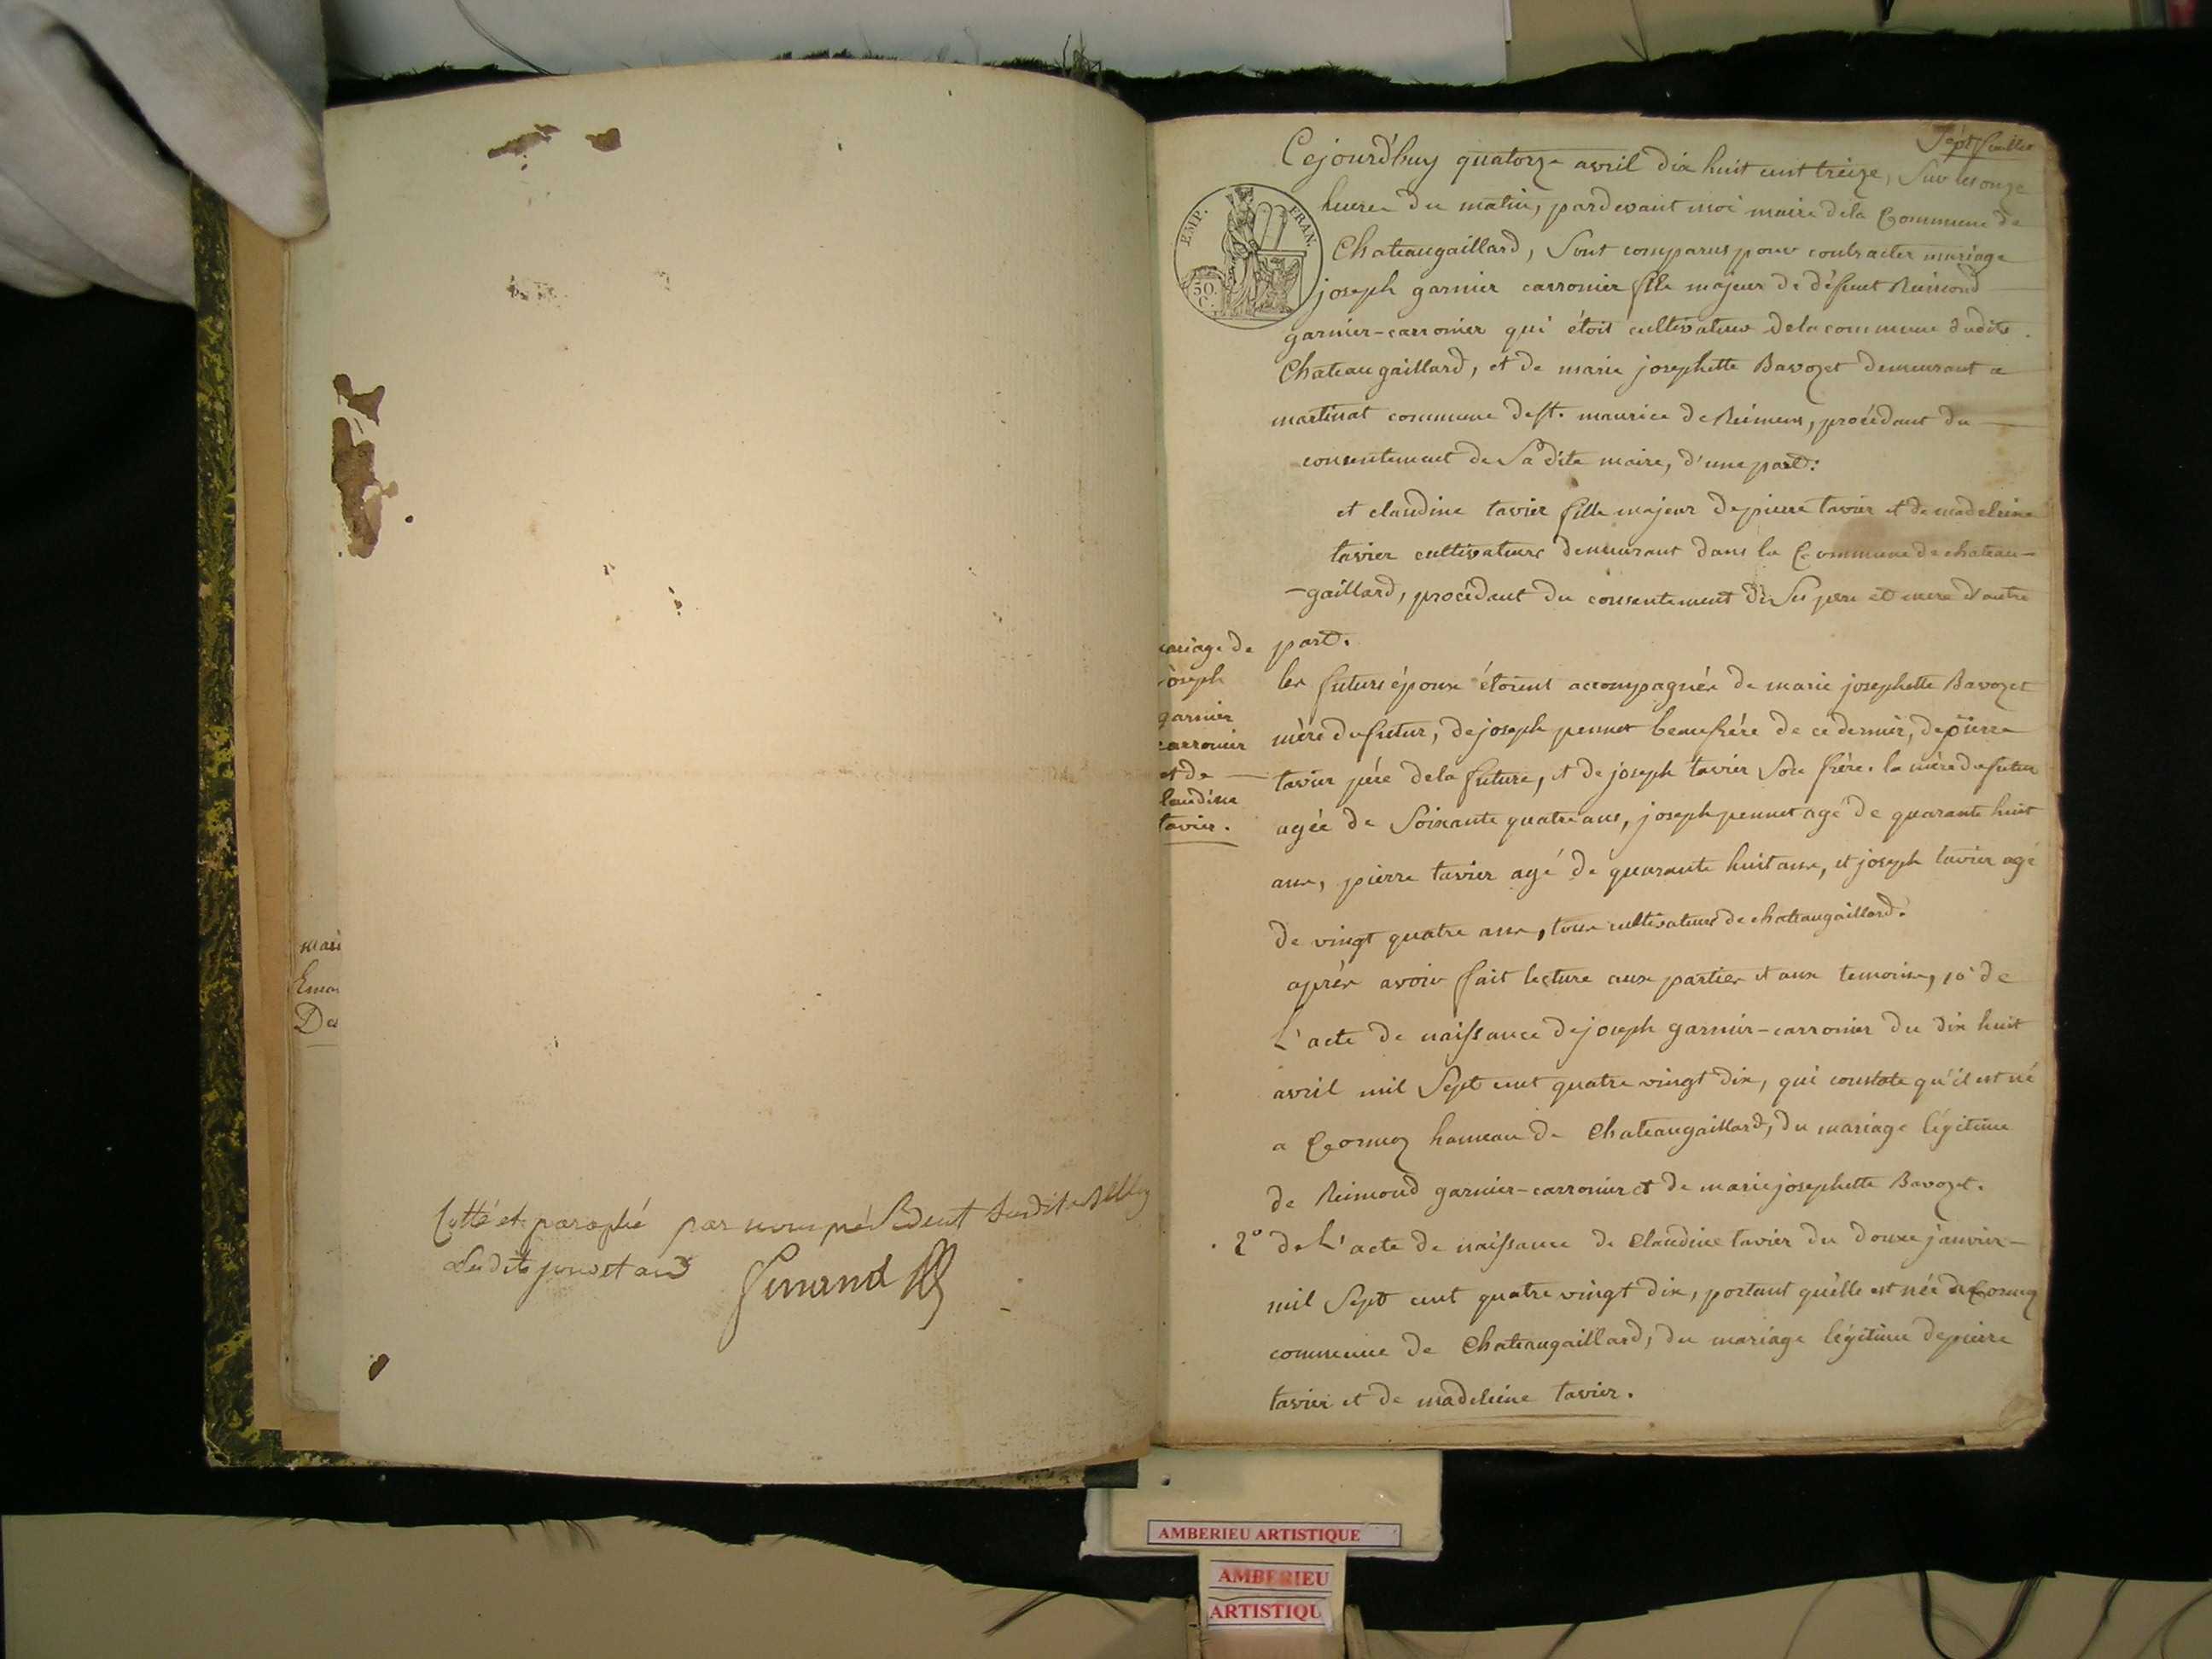 mari
Emar
De
Cotté et paraphé par nous président susdit
dudit jour et an
Sept feuillet
Cejourd'huy quatorze avril dix huit cent treize, Sur les onze
EMP. FRAN.
50.
C.
heures du matin, pardevant moi maire de la Commune de
Chateaugaillard, Sont comparus pour contracter mariage
joseph garnier carronier fils majeur de défunt Reimond
garnier-carronier qui étoit cultivateur de la commune dudit
Chateaugaillard, et de marie josephette Bavozet demeurant a
martinat commune de st. maurice de Reimens, procédant du
consentement de Sa dite maire, d'une part:
et claudine tavier fille majeur de pierre tavier et de madeleine
tavier cultivateurs demeurant dans la Commune de chateau-
-gaillard, procédant du consentement de Ses pere et mere d'autre
part.
mariage de
joseph
garnier
carronier
et de
laudine
tavier.
les futurs époux étoient accompagnés de marie josephette Bavozet
mère du futur, de joseph pennet beaufrére de ce dernier, de pierre
tavier pére de la future, et de joseph tavier Son frère. la mère du futur
agée de Soixante quatre ans, joseph pennet agé de quarante huit
ans, pierre tavier agé de quarante huit ans, et joseph tavier agé
de vingt quatre ans, tous cultivateurs de chateaugaillard.
après avoir fait lecture aux parties et aux temoins, 1o de
L'acte de naissance de joseph garnier-carronier du dix huit
avril mil Sept cent quatre vingt dix, qui constate qu'il est né
a Cormoz hameau de Chateaugaillard, du mariage légitime
de Reimond garnier-carronier et de marie josephette Bavozet.
2o de L'acte de naissance de Claudine tavier du douze janvier
mil Sept cent quatre vingt dix, portant qu'elle est née de Cormoz
commune de Chateaugaillard, du mariage légitime de pierre
tavier et de madeleine tavier.
AMBERIEU ARTISTIQUE
AMBERIEU
ARTISTIQU